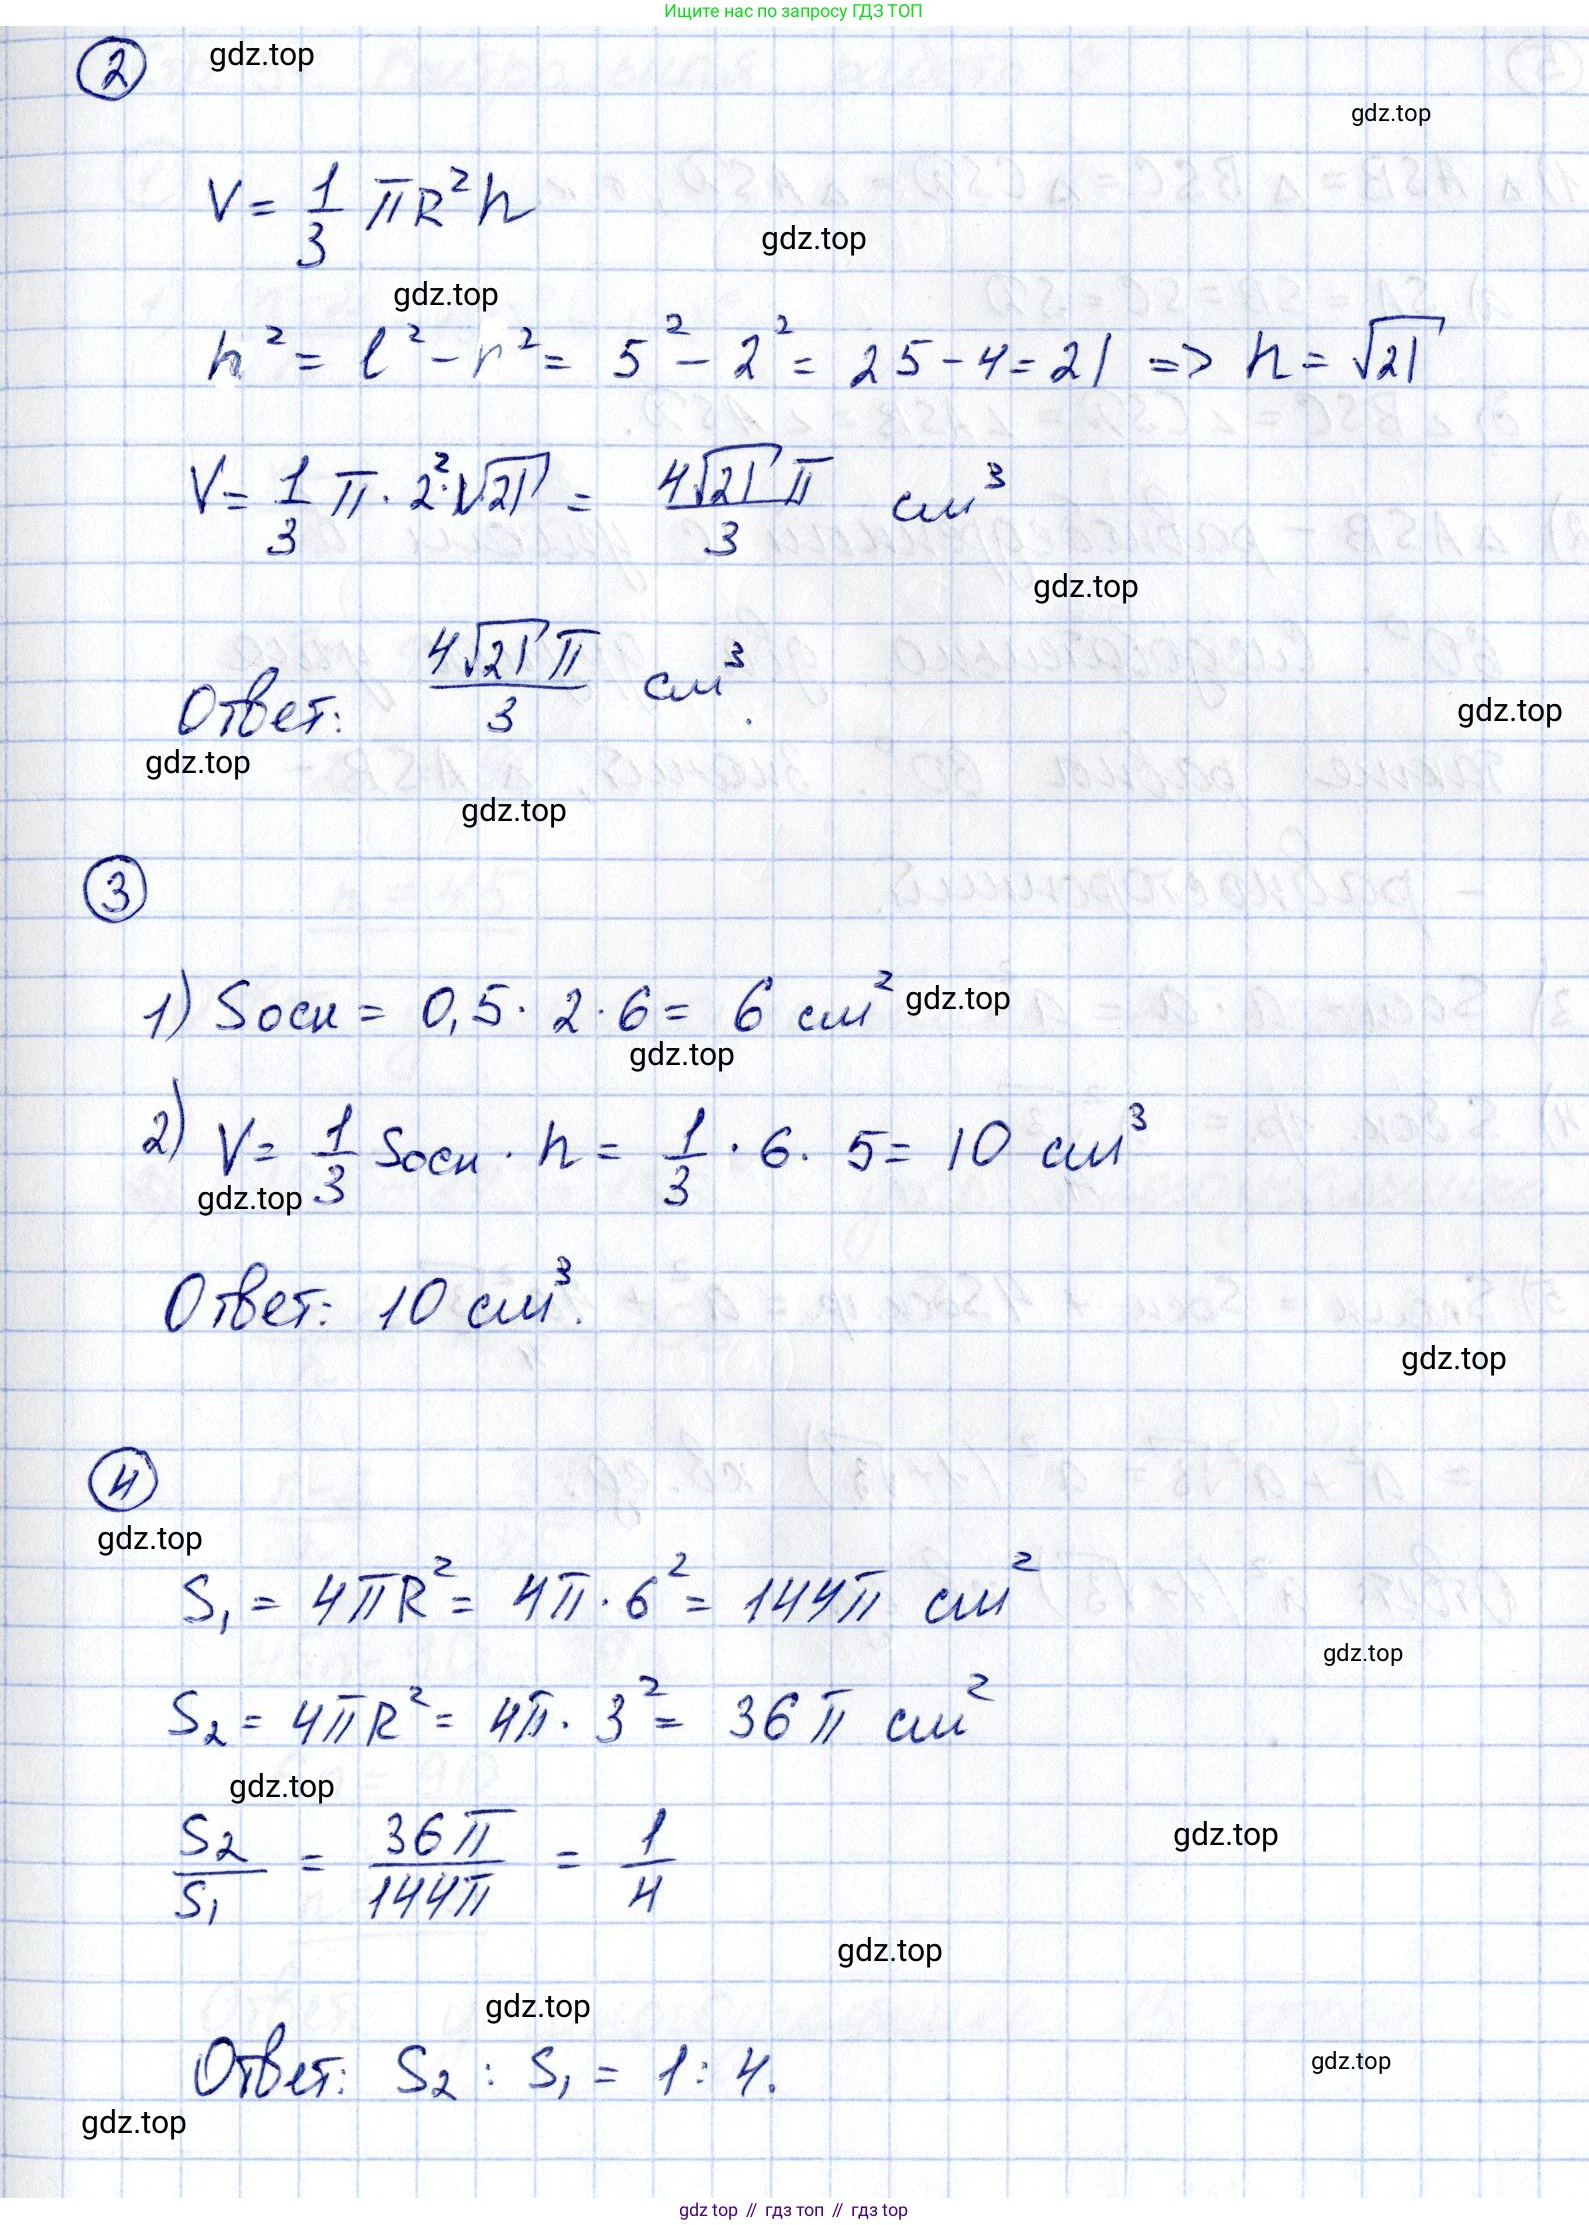 Ищите нас по запросу ГДЗ ТОП
2
gdz.top
gdz.top
V = 1/3 πR²h
gdz.top
gdz.top
h² = l² - r² = 5² - 2² = 25 - 4 = 21 => h = √21
V = 1/3 π · 2² · √21 = 4√21 π/3 см³
gdz.top
Ответ: 4√21 π/3 см³.
gdz.top
gdz.top
gdz.top
3
1) Sосн = 0,5 · 2 · 6 = 6 см²
gdz.top
gdz.top
2) V = 1/3 Sосн · h = 1/3 · 6 · 5 = 10 см³
gdz.top
Ответ: 10 см³.
gdz.top
4
gdz.top
S₁ = 4πR² = 4π · 6² = 144π см²
gdz.top
S₂ = 4πR² = 4π · 3² = 36π см²
gdz.top
S₂/S₁ = 36π/144π = 1/4
gdz.top
gdz.top
gdz.top
Ответ: S₂ : S₁ = 1 : 4.
gdz.top
gdz.top
gdz top // гдз топ // гдз top